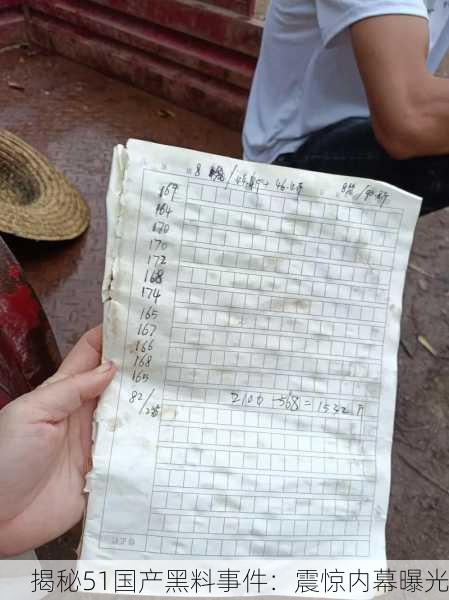 169
164
170
170
172
168
174
165
167
166
168
165
82/
2100 - 568 = 1532
揭秘51国产黑料事件：震惊内幕曝光